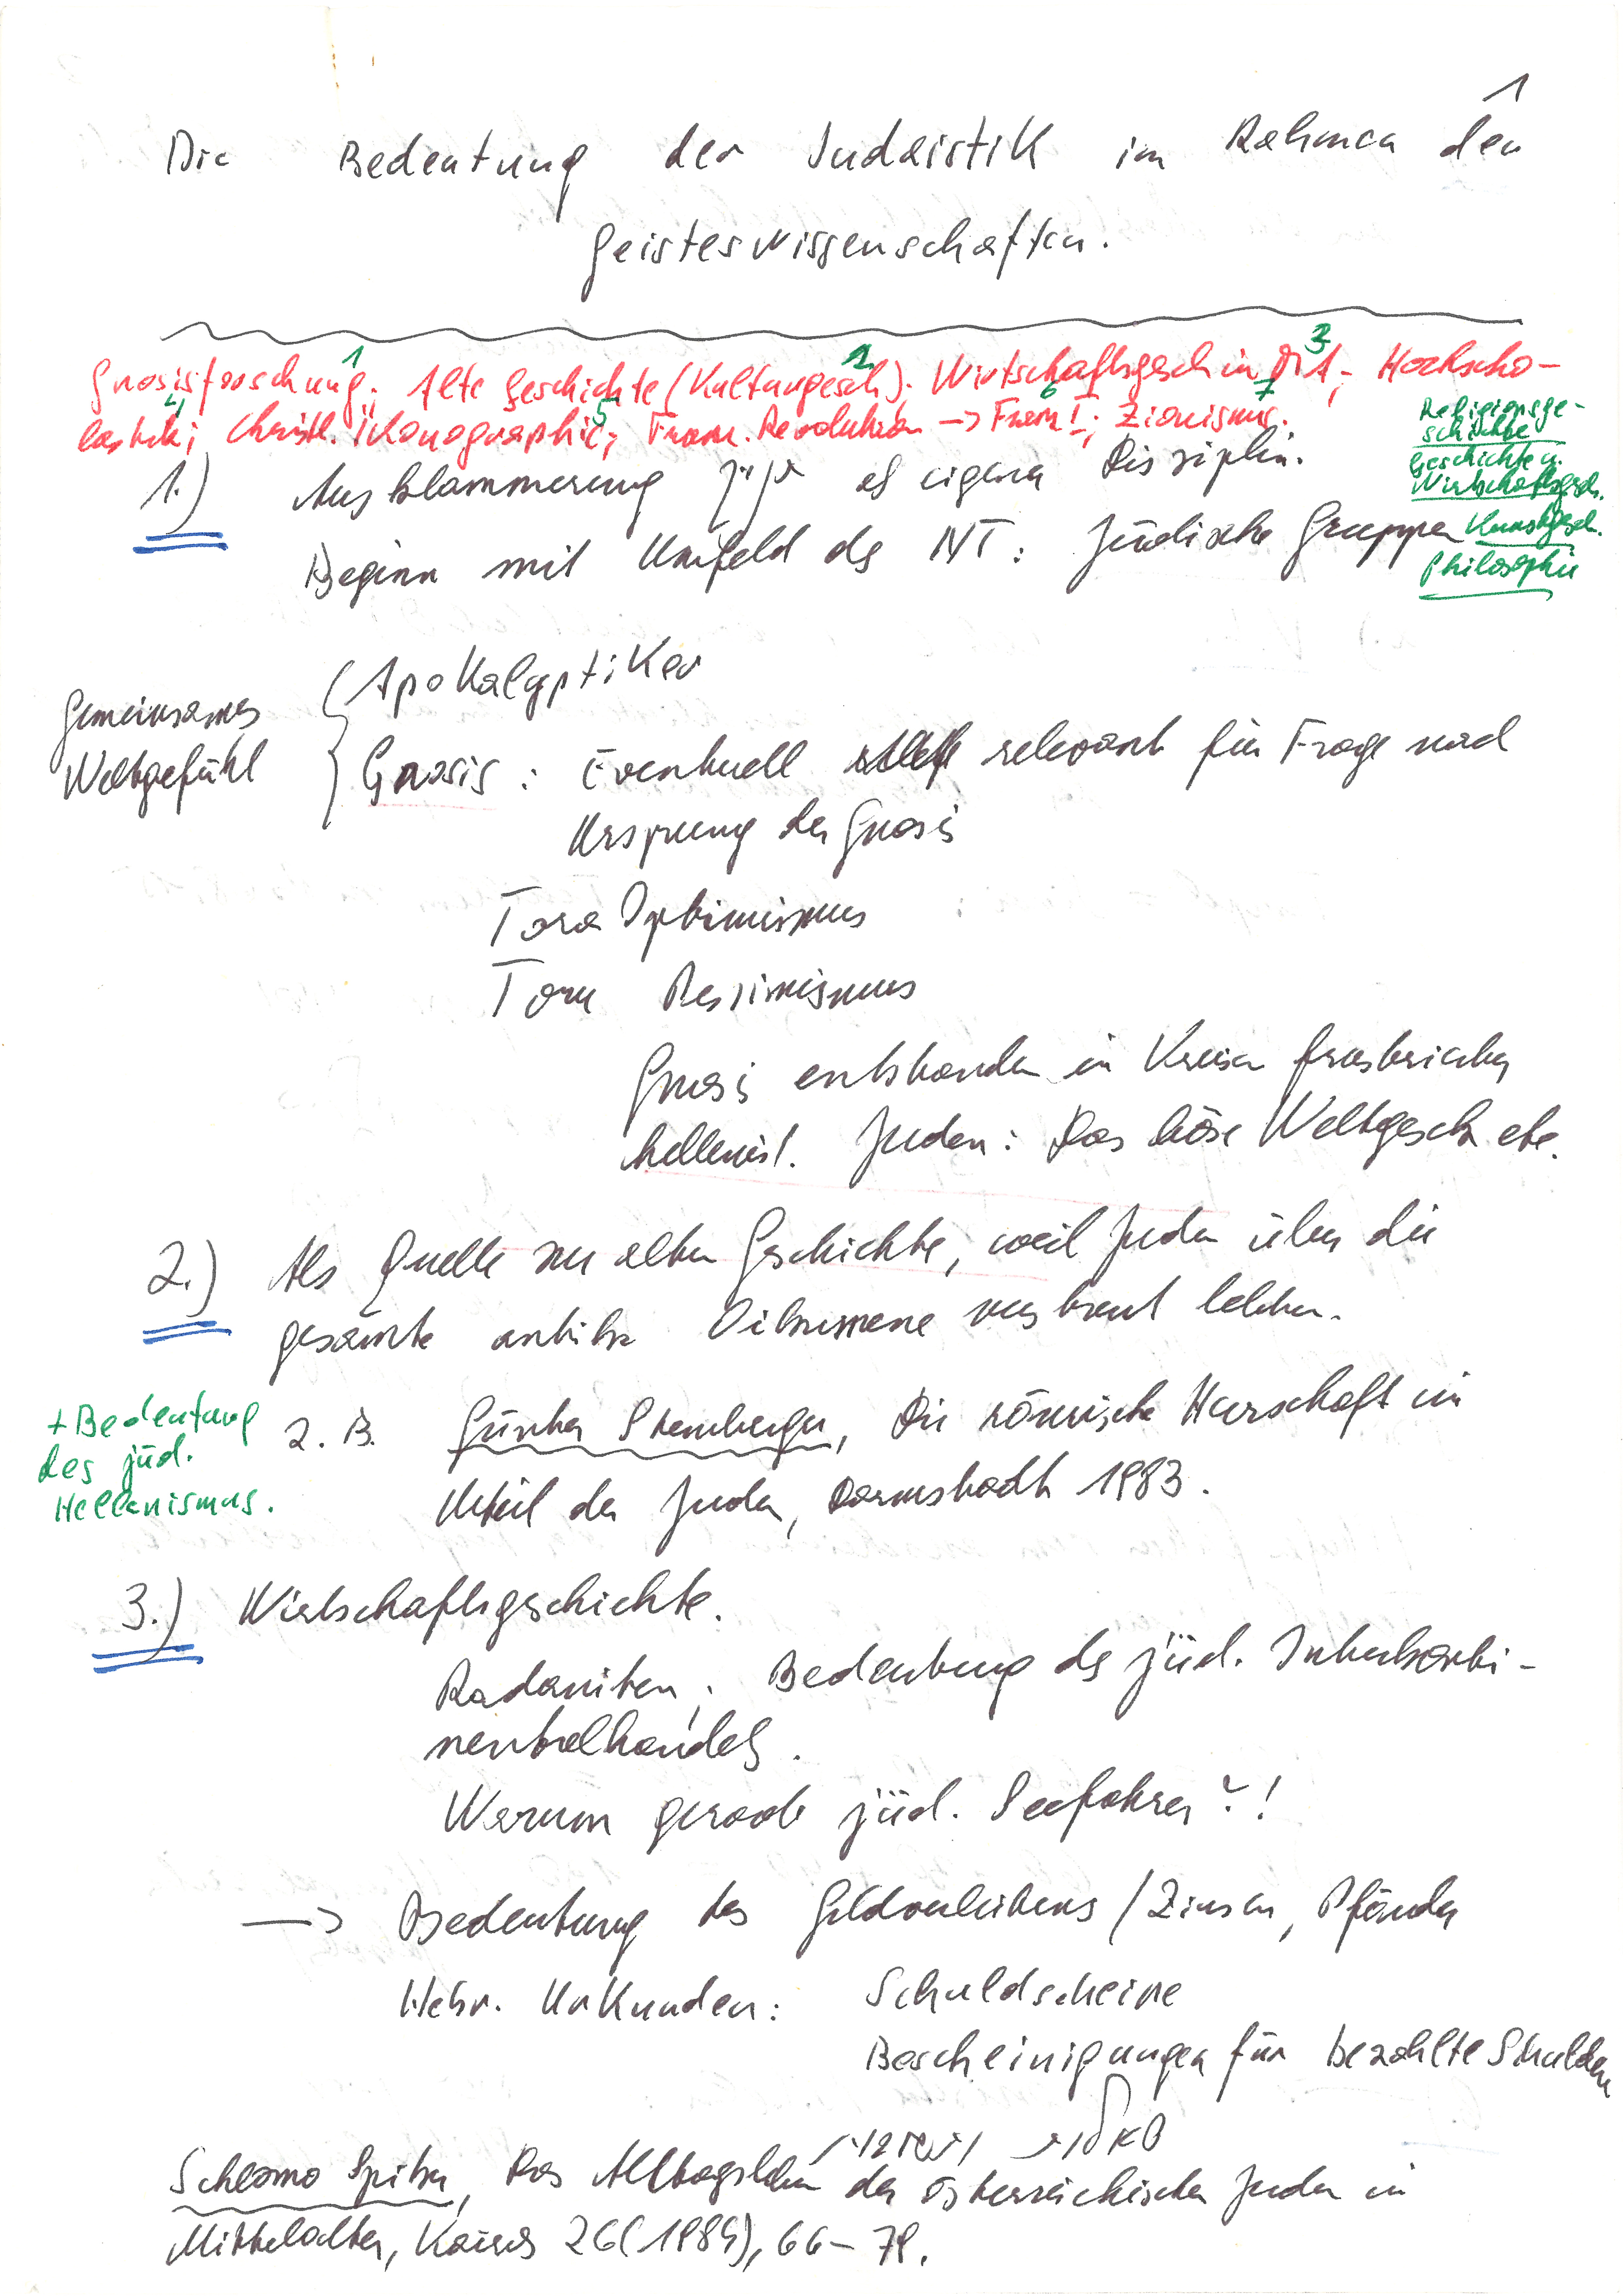 1
Die Bedeutung der Judaistik im Rahmen der
Geisteswissenschaften.
1 2 3
Gnosisforschung; Alte Geschichte (Kulturgesch); Wirtschaftsgesch im MA; Hochscho-
4 5 6 7
lastik; Christl. Ikonographie; Franz. Revolution -> Franz I; Zionismus.
Religionsge-
schichte
Geschichte u.
Wirtschaftsgesch.
Kunstgesch.
Philosophie
1.) Ausklammerung als eigene Disziplin.
Beginn mit Umfeld des NT: Jüdische Gruppen
Gemeinsames
Weltgefühl
Apokalyptiker
Gnosis: Eventuell relevant für Frage nach
Ursprung der Gnosis
Tora Optimismus
Tora Pessimismus
Gnosis entstanden in Kreisen frustrierter
hellenist. Juden: Das böse Weltgesetz etc.
2.) Als Quelle zur alten Geschichte, weil Juden über die
gesamte antike Oikumene verstreut lebten.
+ Bedeutung
des jüd.
Hellenismus.
z. B. Günter Stemberger, Die römische Herrschaft im
Urteil der Juden, Darmstadt 1983.
3.) Wirtschaftsgeschichte.
Radaniten; Bedeutung des jüd. Interkonti-
nentalhandels.
Warum gerade jüd. Seefahrer?!
-> Bedeutung des Geldverleihens / Zinsen, Pfänder
Hebr. Urkunden: Schuldscheine
Bescheinigungen für bezahlte Schulden
Schlomo Spitzer, Das Alltagsleben der österreichischen Juden im
Mittelalter, Kairos 26 (1984), 66-78.